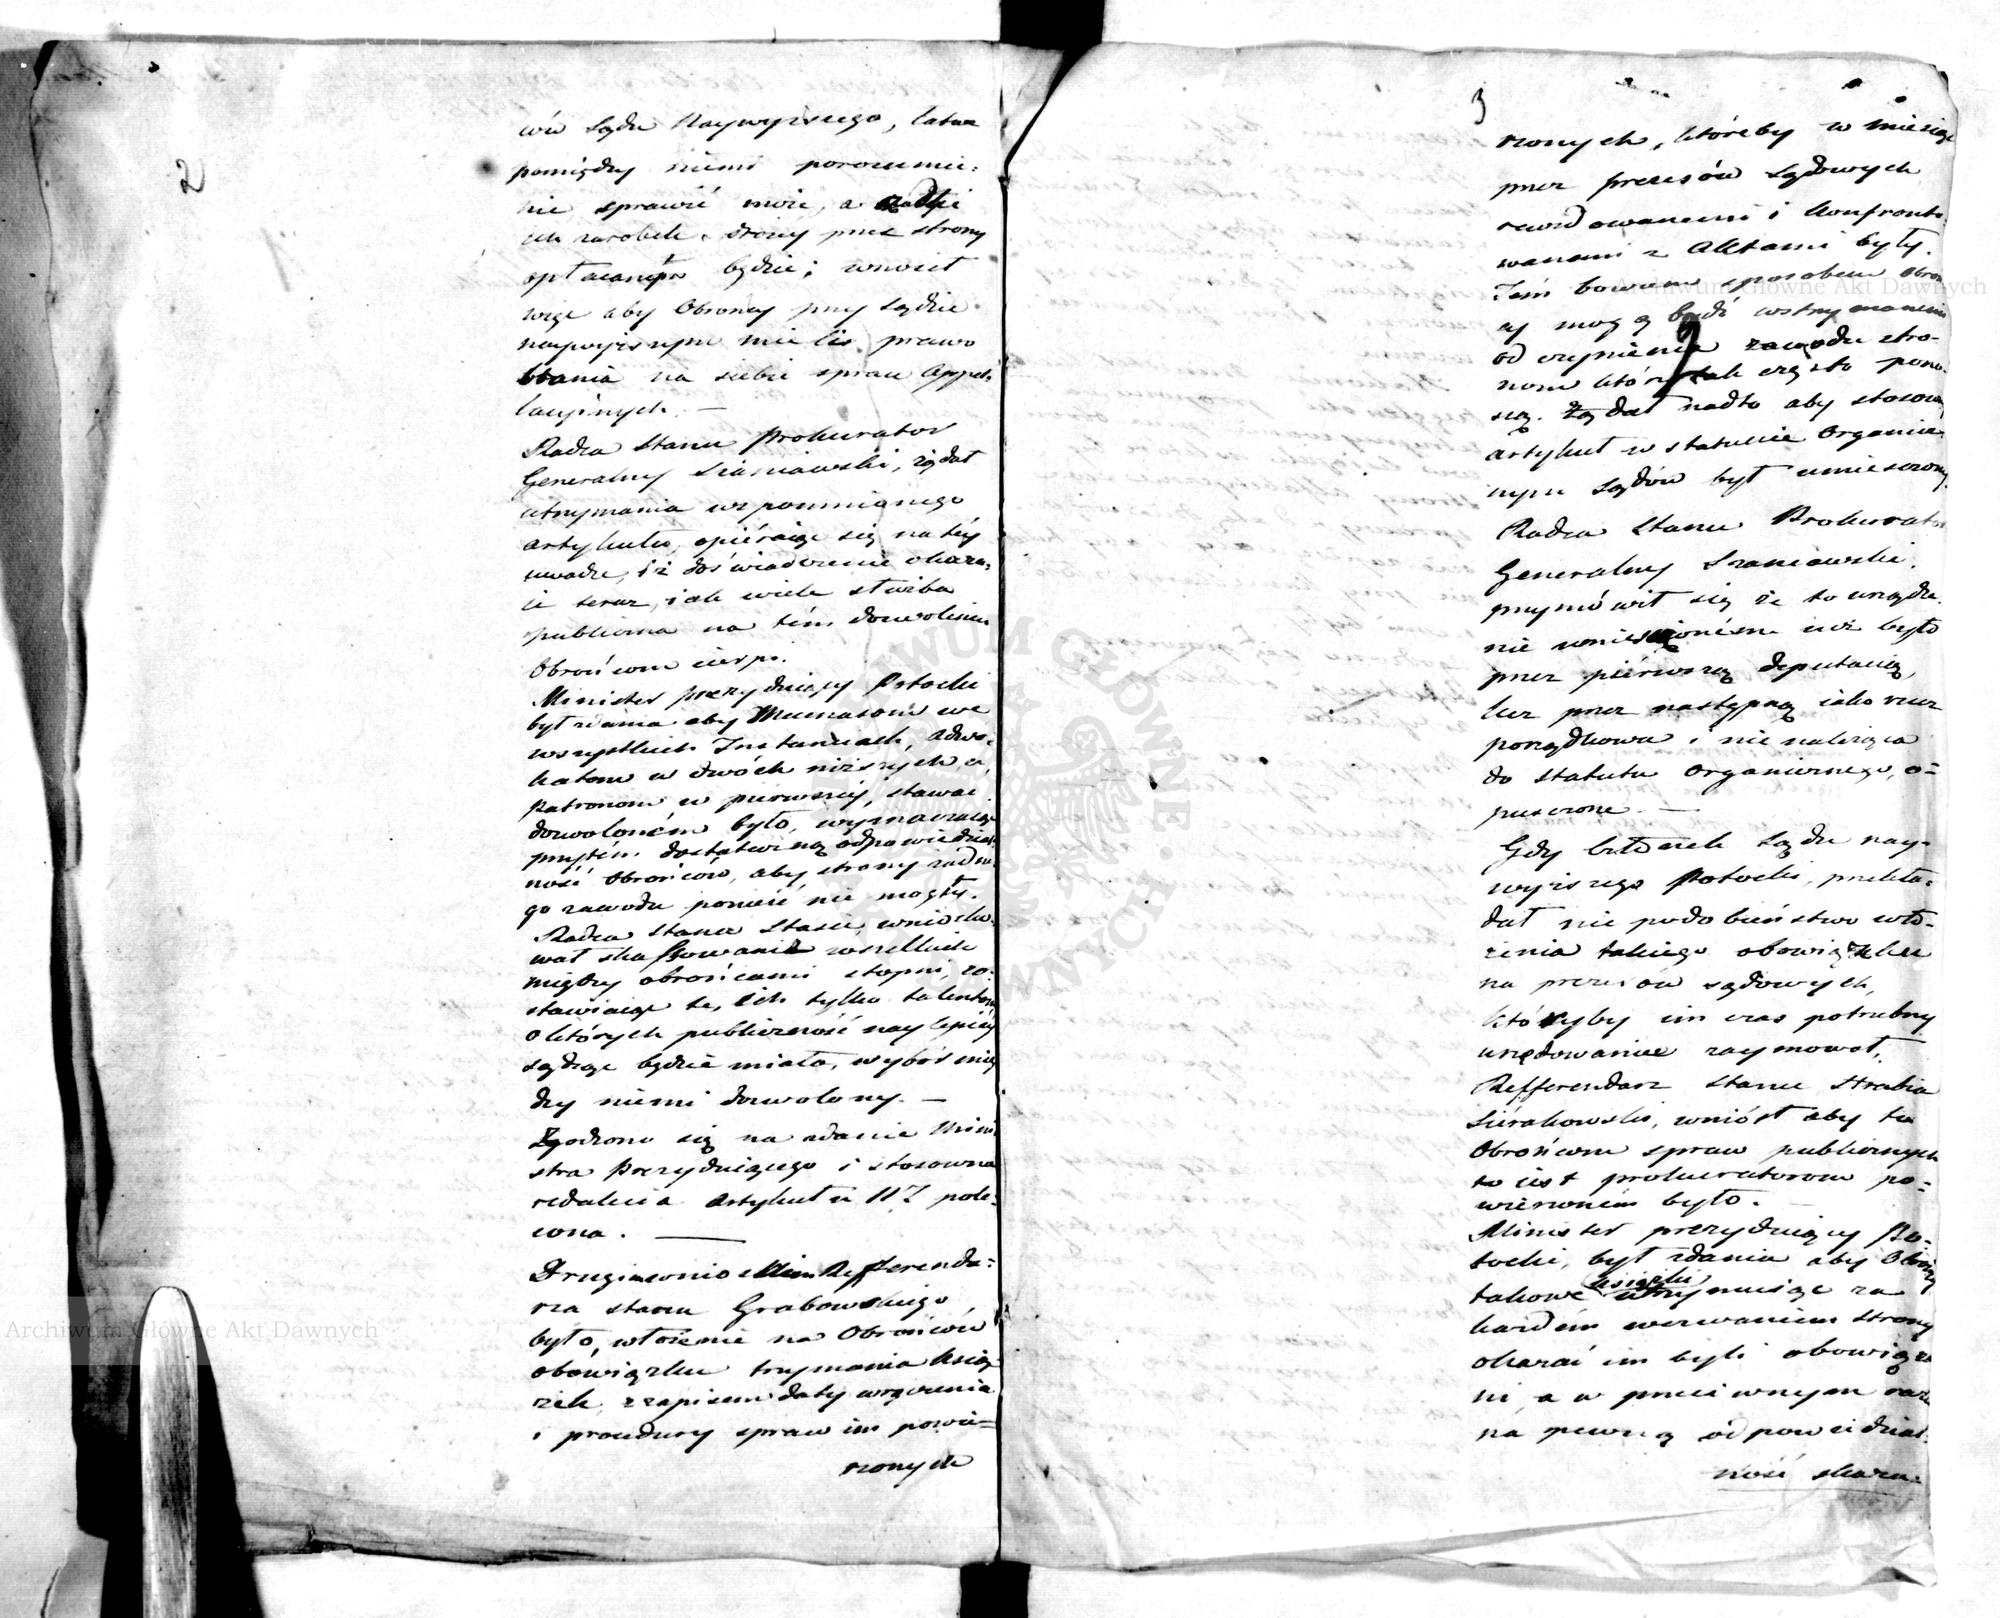 2
ców Sądu Naywyższego, łatwe
pomiędzy niemi porozumie-
nie sprawić może, a
ich zarobek drożej przez strony
opłacanym będzie; wnosił
więc aby Obrońcy przy Sądzie
naywyższym mieli prawo
brania na siebie spraw Appel-
lacyinych. —
Radca Stanu Prokurator
Generalny Szaniawski, żądał
utrzymania wzpomnianego
artykułu, opieraiąc się na tey
uwadze, iż doświadczenie okazu-
ie teraz, iak wiele służba
publiczna na tém dozwoleniu
Obrońcom cierpi.
Minister prezyduiący Potocki
był zdania aby Mecenasom we
wszystkich Instancyach, Adwo-
katom w dwóch niższych, a
Patronom w pierwszey, stawać
dozwoloném było, wyznaczaiąc
przytém dostateczną odpowiedzial-
ność Obrońców, aby strony żadne-
go zawodu ponieść nie mogły.
Radca Stanu Staszic, wniosko-
wał skassowanie wszelkich
między obrońcami stopni, zo-
stawiaiąc te, ich tylko talentom
o których publiczność naylepiey
sądzić będzie miała, wybór mię
dzy niemi dozwolony. —
Zgodzono się na zdanie Mini
stra Prezyduiącego i stosowna
redakcia Artykułu 117 pole-
cona. —
Drugim wnioskiem Refferenda-
rza stanu Grabowskiego
było, włożenie na Obrońców
obowiązku trzymania książ-
żek, z zapisem daty wręczenia
i procedury spraw im powie-
rzonych
3
rzonych, któreby w miesiąc
przez prezesów sądowych
rewidowanemi i konfronto-
wanemi z Aktami były.
Tém bowiem sposobem Obroń
cy mogą bydź wstrzymanemi
od czynienia zawodu stro-
nom które tak często pono-
szą. Żądał nadto aby stosowny
artykuł w statucie Organicz-
nym Sądów był umieszczony.
Radca Stanu Prokurator
Generalny Szaniawski,
przymówił się że to urządze-
nie umieszczoném iuż było
przez pierwszą deputacią,
lecz przez następną iako rzecz
porządkowa i nie należąca
do Statutu Organicznego, o-
puszczone. —
Gdy Członek Sądu nay-
wyższego Potocki, przekła-
dał nie podobieństwo wło-
żenia takiego obowiązku
na prezesów sądowych,
któryby im czas potrzebny
urzędowanie zaymował,
Refferendarz Stanu Hrabia
Sierakowski, wniósł aby to
Obrońcom spraw publicznych
to iest prokuratorom po-
wierzoném było. —
Minister prezyduiący Po-
tocki, był zdania aby Obrońcy
książki
takowe utrzymuiąc za
każdém wezwaniem Strony
okazać im byli obowiąza
ni, a w przeciwnym razie
na pewną odpowiedzial-
ność skaza-
Archiwum Główne Akt Dawnych
Archiwum Główne Akt Dawnych
ARCHIWUM GŁÓWNE AKT DAWNYCH